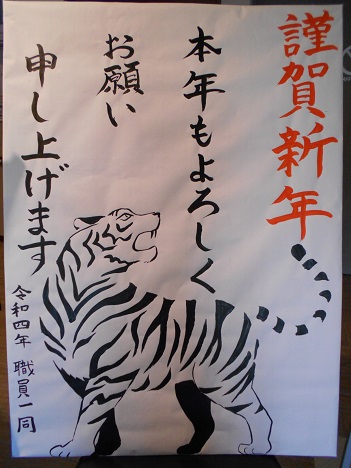 謹賀新年
本年もよろしく
お願い
申し上げます
令和四年 職員一同